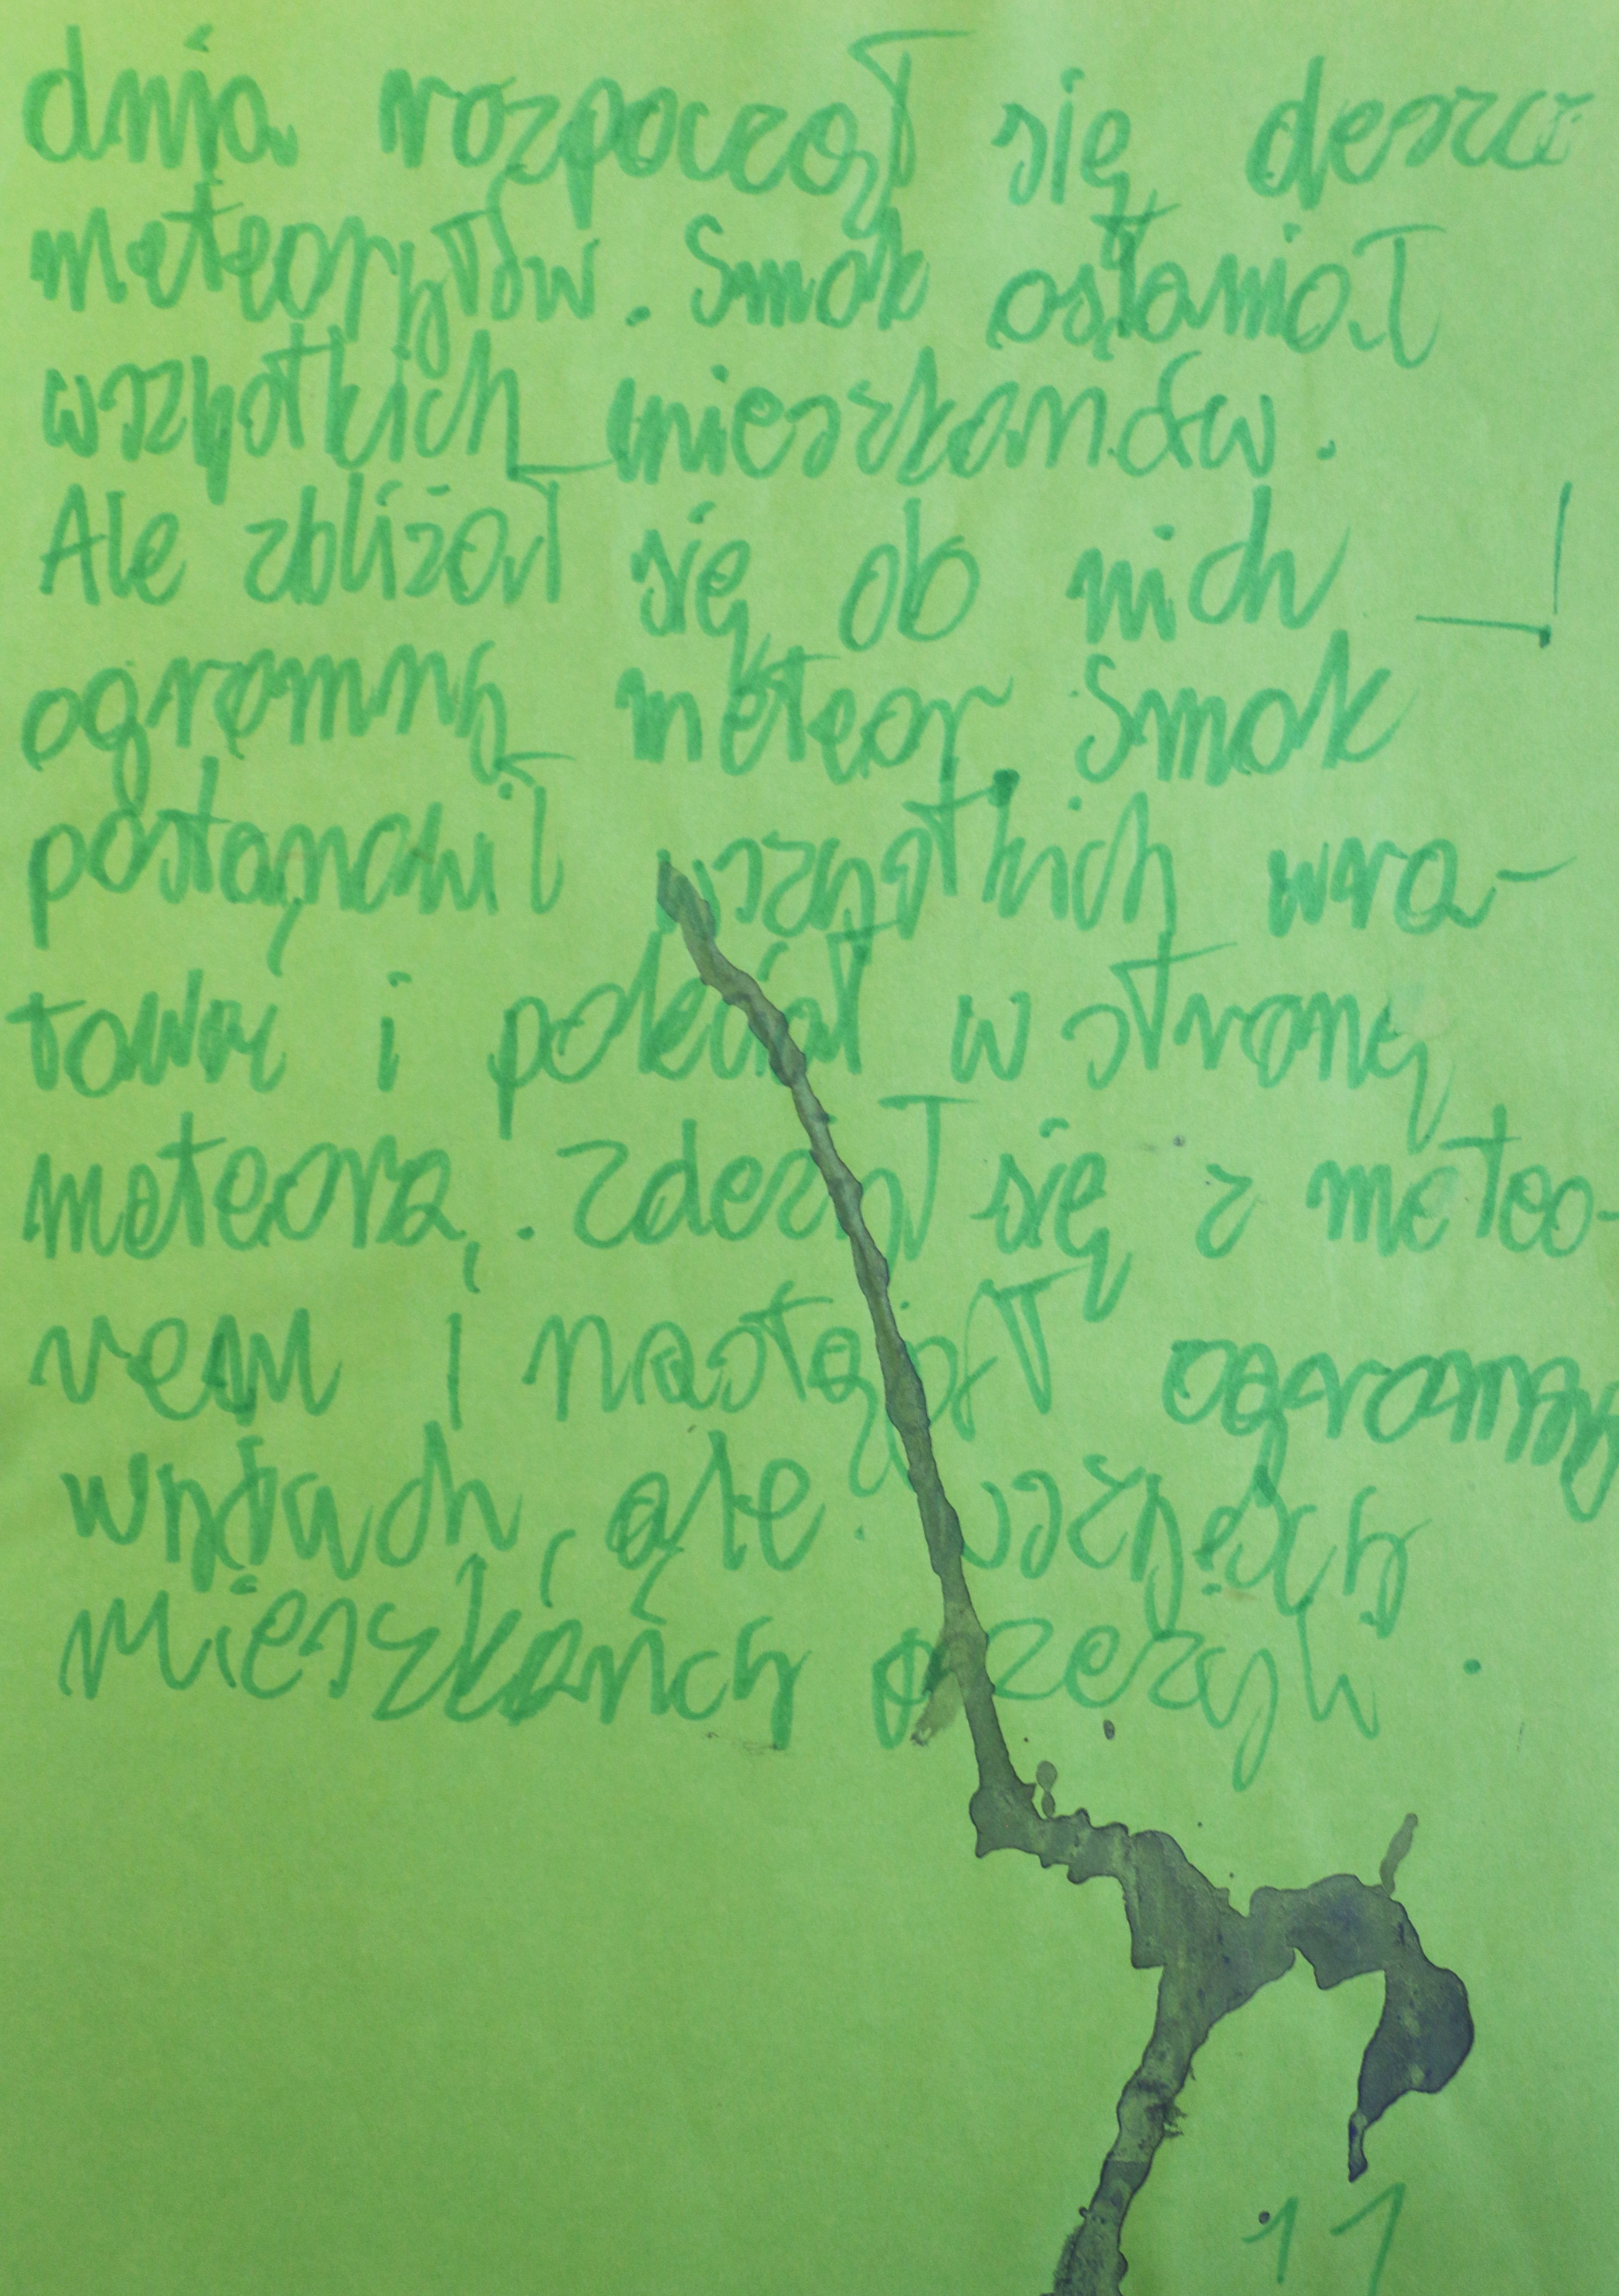 dnia rozpoczął się deszcz
meteorytów. Smok osłaniał
wszystkich mieszkanców.
Ale zbliżał się ob nich
ogromny meteor. Smok
postanowił wszystkich ura-
tować i poleciał w stronę
meteora. Zdeżył się z meteo-
rem i nastąpił ogromny
wybuch, ale wszyscy
mieszkańcy przeżyli.
11